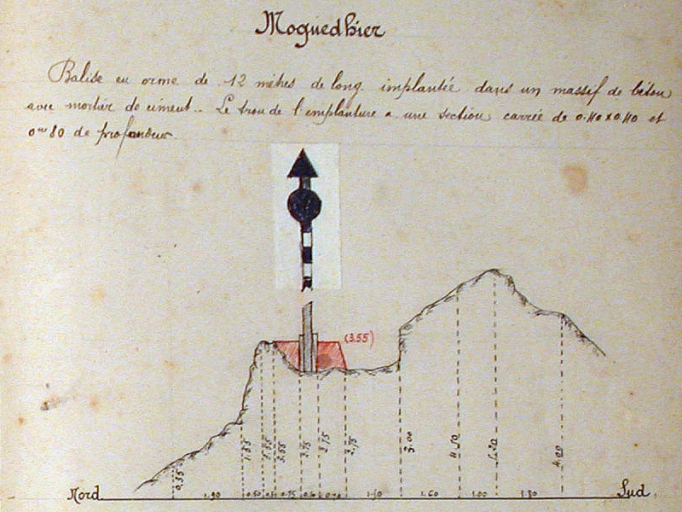 Moguedhier
Balise en orme de 12 mètres de long implantée dans un massif de béton
avec mortier de ciment.. Le trou de l'emplanture a une section carrée de 0.40x0.40 et
0m80 de profondeur
(3.55)
0.35
3.00
4.50
4.00
Nord
1.90
0.50
0.75
1.60
1.00
Sud